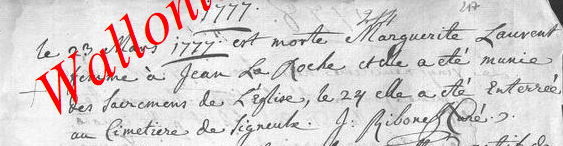 1777.
217
le 23 Mars 1777 est morte Marguerite Laurent
femme à Jean La Roche et elle a été munie
des Sacremens de L'Église, le 24 elle a été Enterrée
au Cimetiere de Signeulx. J: Ribonet Curé.
Walloni